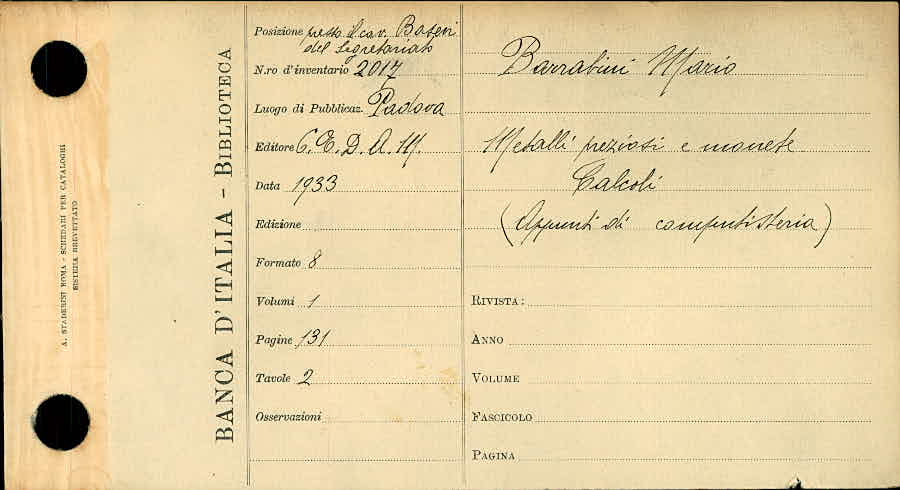 A. STADERINI ROMA - SCHEDARI PER CATALOGHI
SISTEMA BREVETTATO
BANCA D'ITALIA - BIBLIOTECA
Posizione presso il cav. Baseri
del Segretariato
N.ro d'inventario 2017
Luogo di Pubblicaz. Padova
Editore C.E.D.A.M.
Data 1933
Edizione
Formato 8
Volumi 1
Pagine 131
Tavole 2
Osservazioni
Barrabini Mario
Metalli preziosi e monete
Calcoli
(Appunti di computisteria)
RIVISTA:
ANNO
VOLUME
FASCICOLO
PAGINA